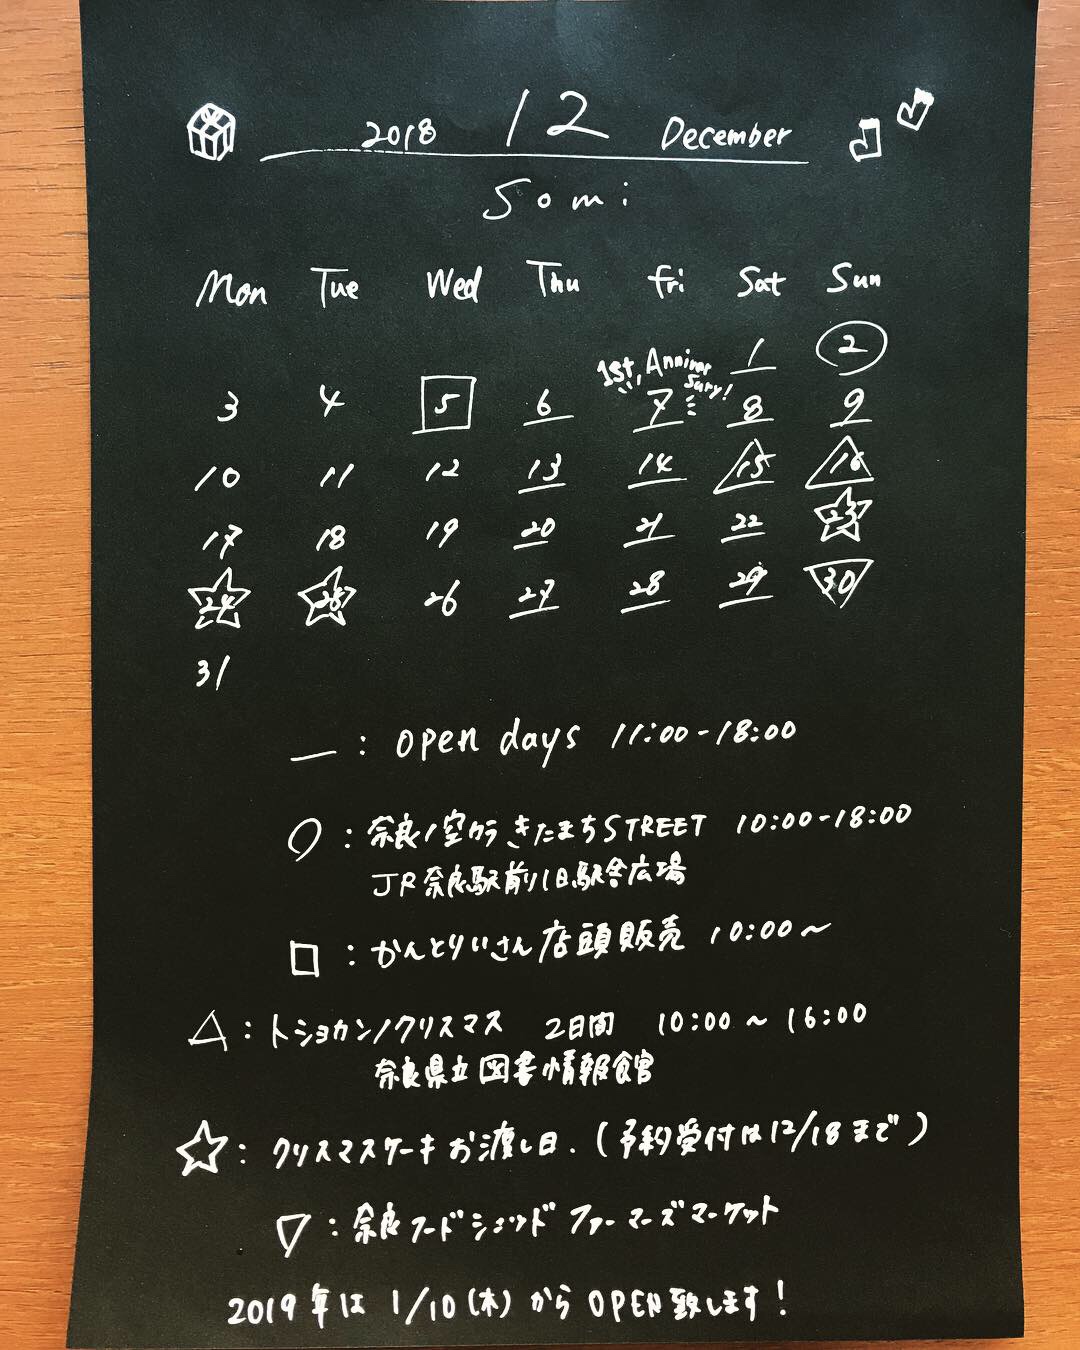 2018 12 December
Somi
Mon Tue Wed Thu Fri Sat Sun
1 2
1st Anniversary!
3 4 5 6 7 8 9
10 11 12 13 14 15 16
17 18 19 20 21 22 23
24 25 26 27 28 29 30
31
— : open days 11:00-18:00
○ : 奈良ノ空カラ きたまちSTREET 10:00-18:00
JR奈良駅前旧駅舎広場
□ : かんとりいさん 店頭販売 10:00〜
△ : トショカンノクリスマス 2日間 10:00〜16:00
奈良県立図書情報館
☆ : クリスマスケーキお渡し日.(予約受付は12/18まで)
▽ : 奈良フードシェッド ファーマーズマーケット
2019年は 1/10(木)からOPEN致します!